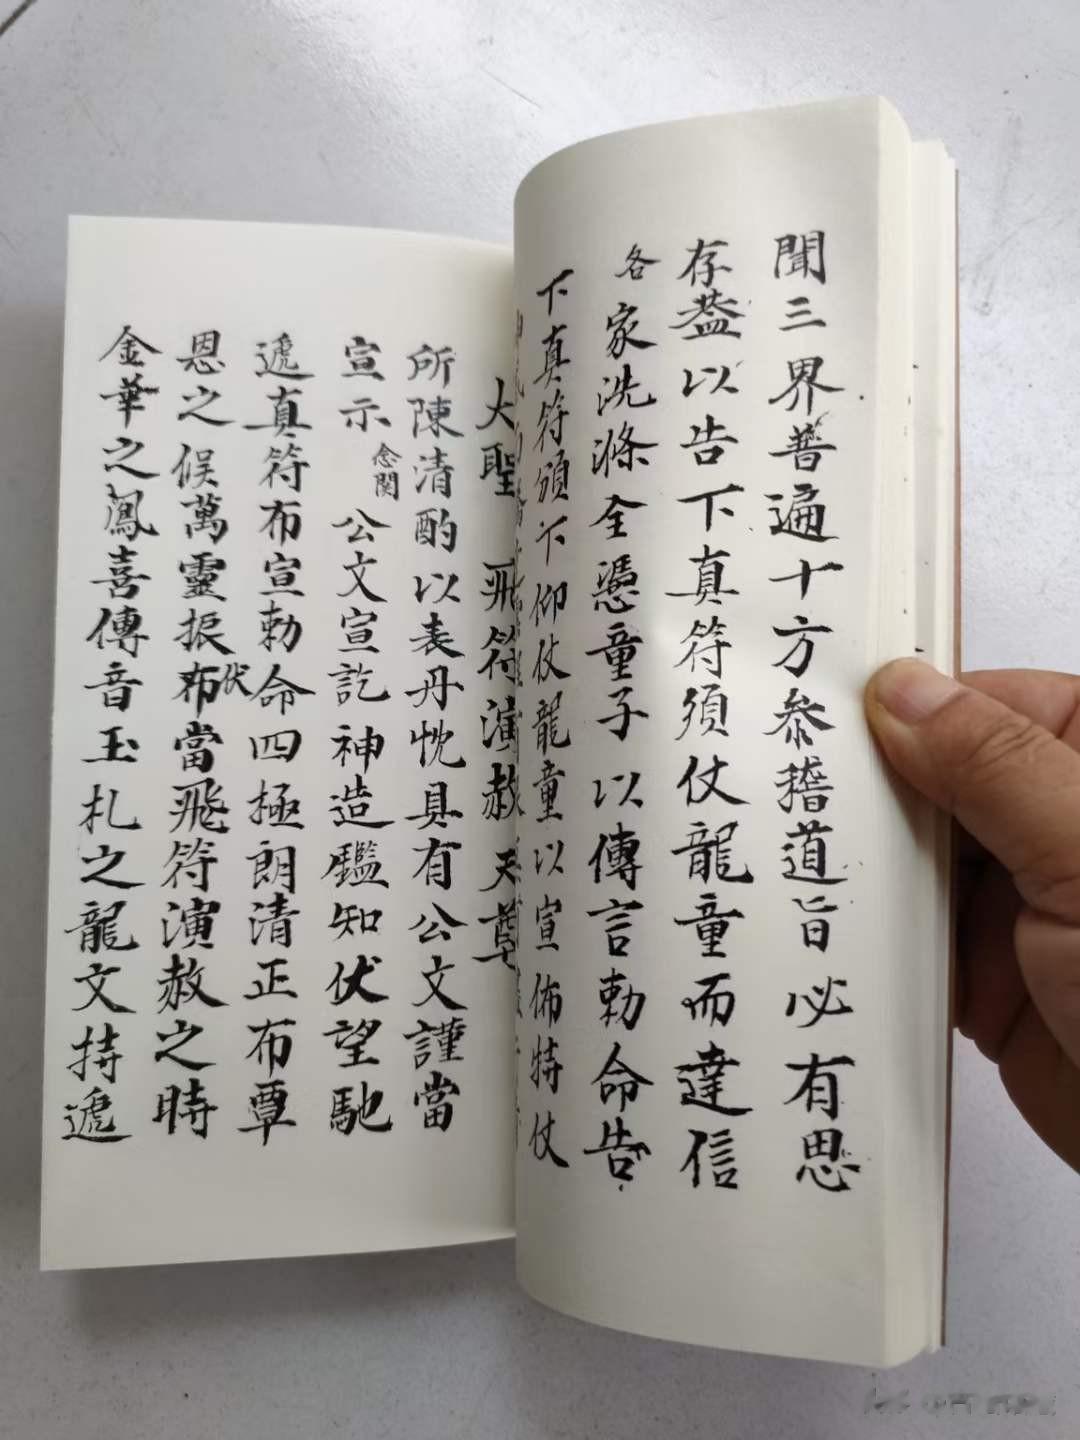 聞三界普遍十方叅稽道旨必有思
存葢以告下真符須仗龍童而達信
各家洗滌全憑童子以傳言勅命告
下真符頒下仰仗龍童以宣佈特仗
大聖 飛符演赦天尊
所陳清酌以表丹忱具有公文謹當
宣示 念関 公文宣訖神造鑑知伏望馳
遞真符布宣勅命四極朗清正布覃
恩之候萬靈振布伏當飛符演赦之時
金華之鳳喜傳音玉札之龍文持遞